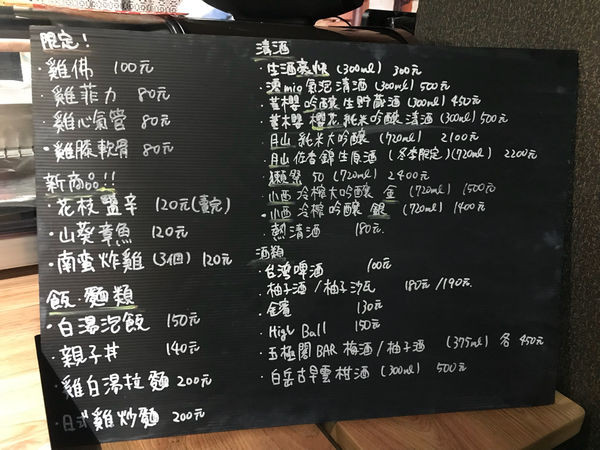 限定！
・雞佛 100元
・雞菲力 80元
・雞心氣管 80元
・雞膝軟骨 80元
新商品!!
・花枝鹽辛 120元(賣完)
・山葵章魚 120元
・南蛮炸雞(3個) 120元
飯.麵類
・白湯泡飯 150元
・親子丼 140元
・雞白湯拉麵 200元
・日式雞炒麵 200元
清酒
・生酒豪快(300ml) 300元
・澪mio氣泡清酒(300ml)500元
・黃櫻吟釀生貯蔵酒(300ml)450元
・黃櫻櫻花純米吟釀清酒(300ml)500元
・月山純米大吟釀(720ml) 2100元
・月山佐香錦生原酒(冬季限定)(720ml) 2200元
・獺祭 50(720ml) 2400元
・山西冷榨大吟釀 金(720ml) 1500元
・山西冷榨吟釀 銀(720ml) 1400元
・熱清酒 180元
酒類
・台灣啤酒 100元
・柚子酒/柚子沙瓦 180元/190元
・金賓 130元
・High Ball 150元
・五極閣BAR梅酒/柚子酒 (375ml) 各 450元
・白岳古早雲柑酒(300ml) 500元